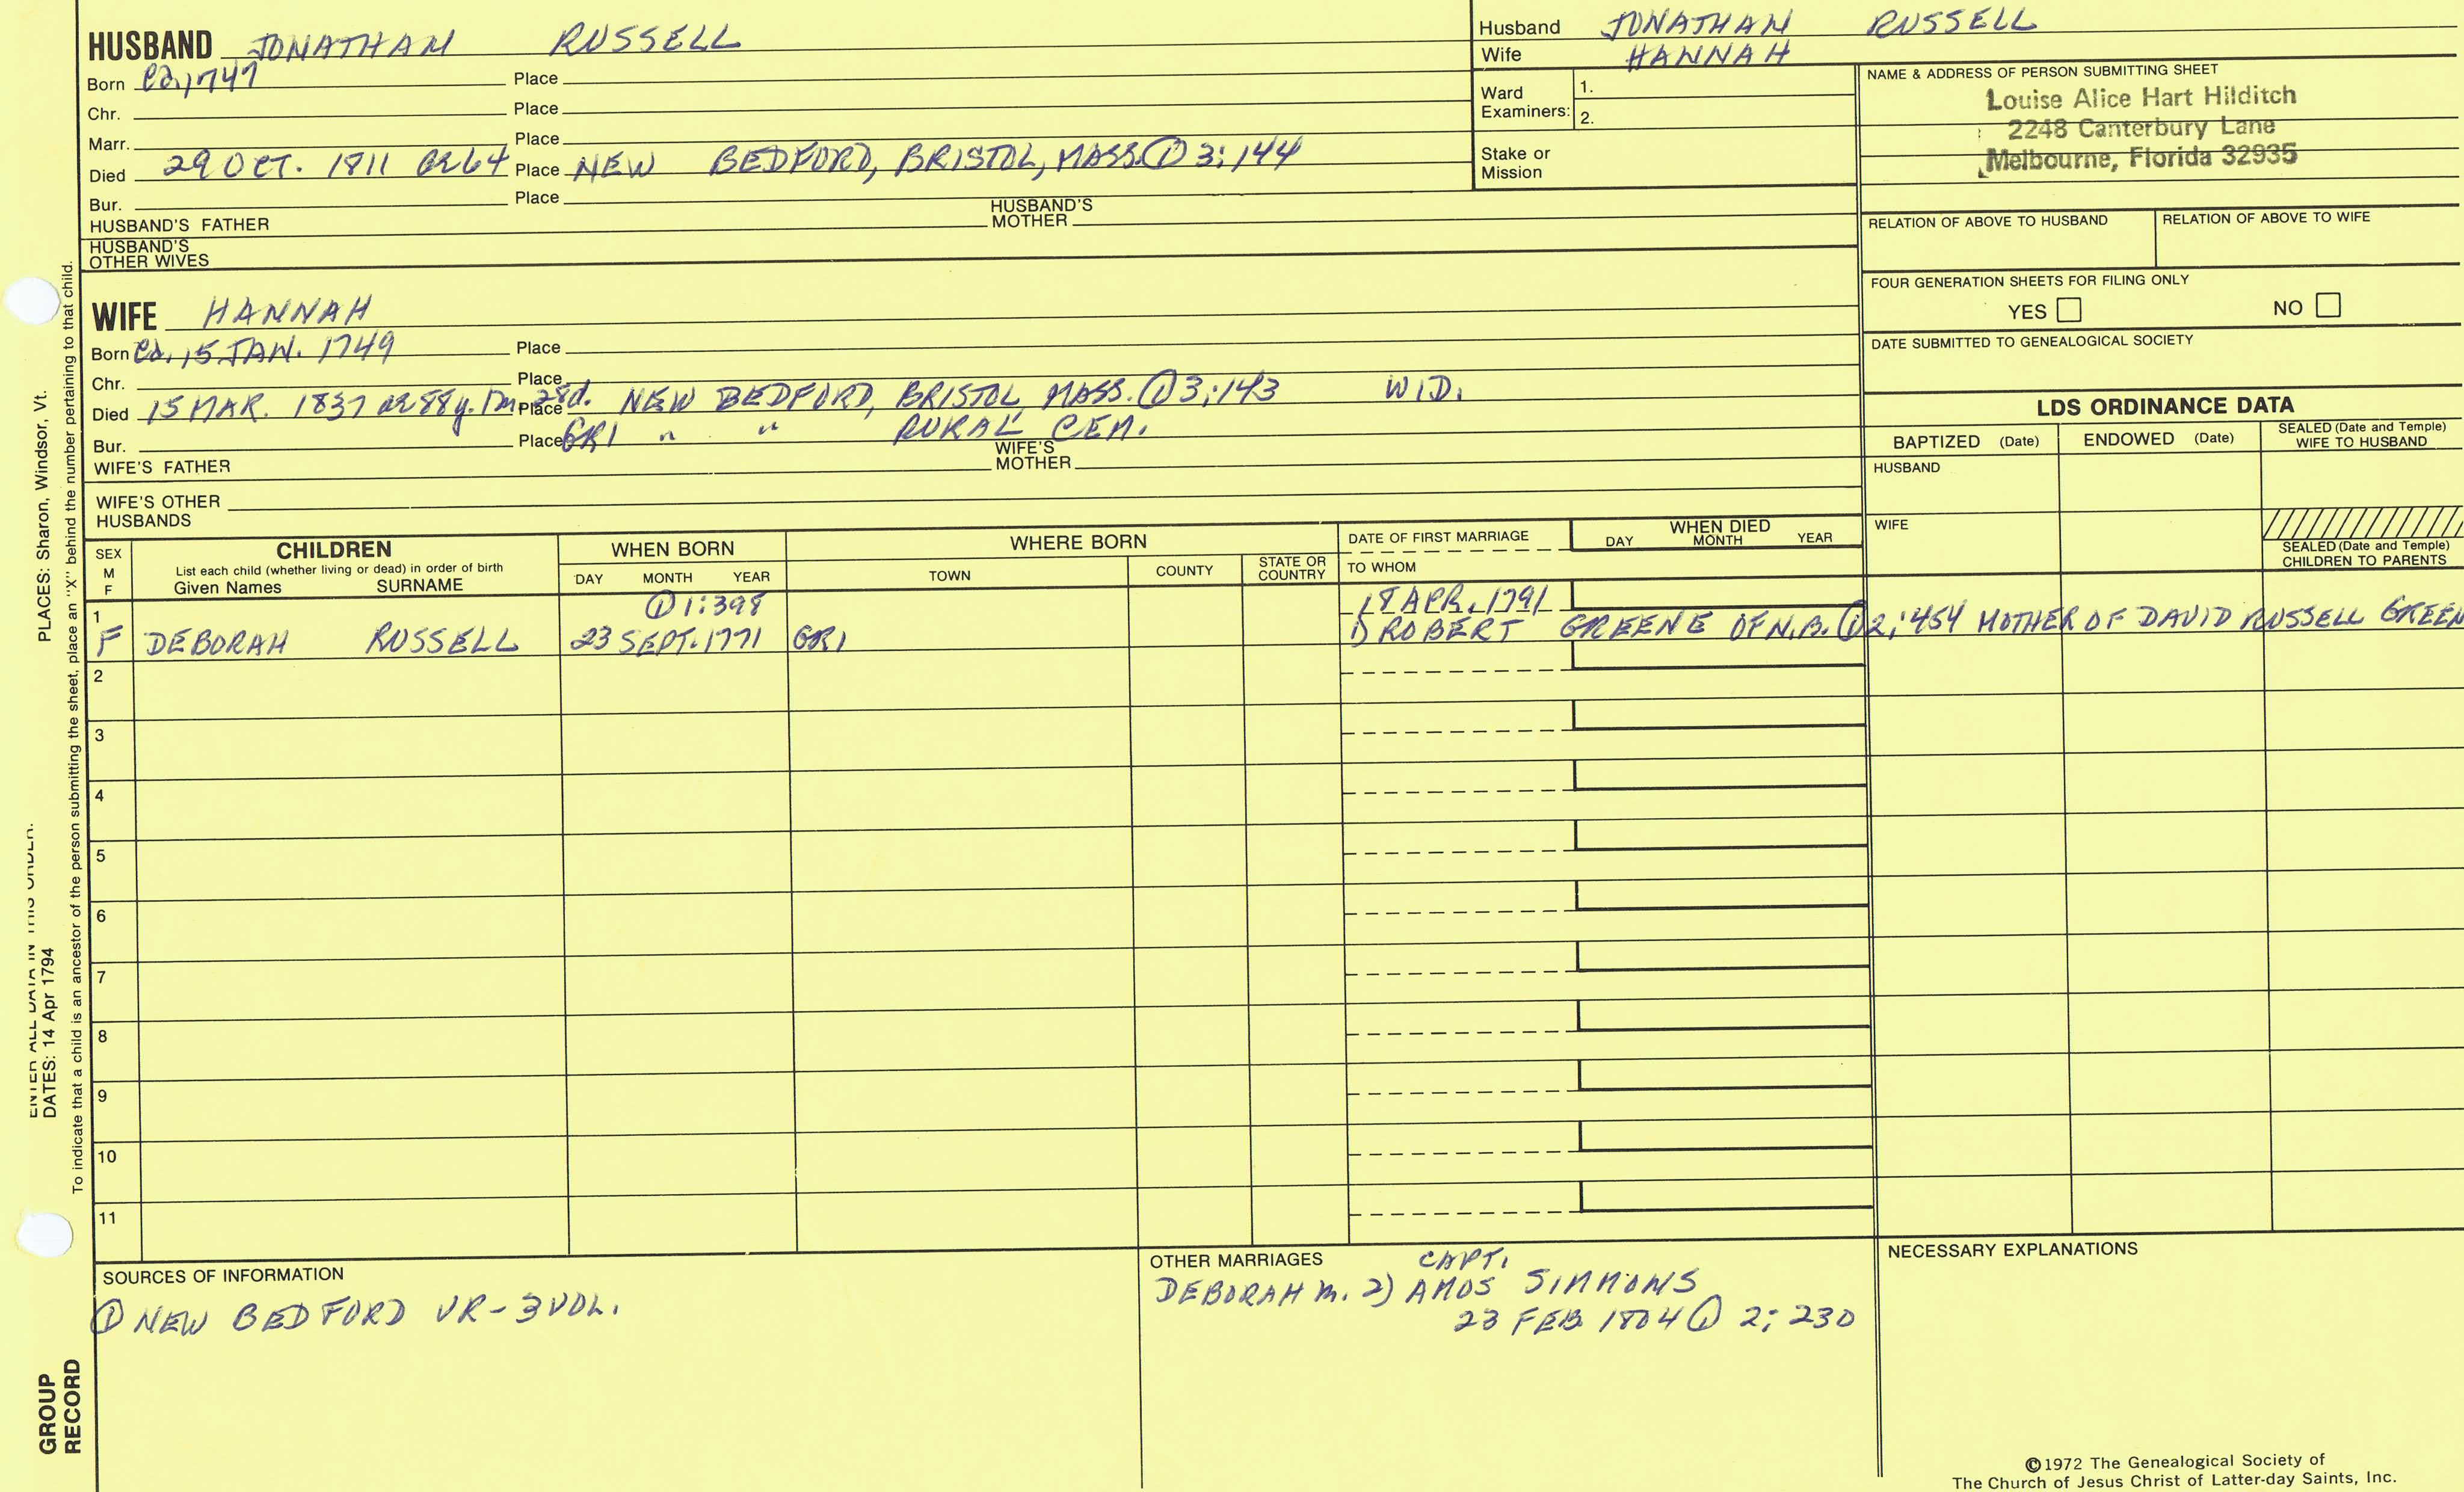 HUSBAND JONATHAN RUSSELL
Born Ca. 1747 Place
Chr. Place
Marr. Place
Died 29 OCT. 1811 ae 64 Place NEW BEDFORD, BRISTOL, MASS. ① 3:144
Bur. Place
HUSBAND'S FATHER HUSBAND'S MOTHER
HUSBAND'S OTHER WIVES
Husband JONATHAN RUSSELL
Wife HANNAH
Ward Examiners: 1.
2.
Stake or Mission
NAME & ADDRESS OF PERSON SUBMITTING SHEET
Louise Alice Hart Hilditch
2248 Canterbury Lane
Melbourne, Florida 32935
RELATION OF ABOVE TO HUSBAND RELATION OF ABOVE TO WIFE
FOUR GENERATION SHEETS FOR FILING ONLY
YES NO
DATE SUBMITTED TO GENEALOGICAL SOCIETY
WIFE HANNAH
Born Ca. 15 JAN. 1749 Place
Chr. Place
Died 15 MAR. 1837 ae 88y. 1m. 28d. Place NEW BEDFORD, BRISTOL, MASS. ① 3:143 WID.
Bur. Place GR1 " " RURAL CEM.
WIFE'S FATHER WIFE'S MOTHER
WIFE'S OTHER HUSBANDS
LDS ORDINANCE DATA
BAPTIZED (Date) ENDOWED (Date) SEALED (Date and Temple) WIFE TO HUSBAND
HUSBAND
WIFE
SEALED (Date and Temple) CHILDREN TO PARENTS
SEX M F
CHILDREN
List each child (whether living or dead) in order of birth
Given Names SURNAME
WHEN BORN
DAY MONTH YEAR
WHERE BORN
TOWN COUNTY STATE OR COUNTRY
DATE OF FIRST MARRIAGE
TO WHOM
WHEN DIED
DAY MONTH YEAR
1 ① 1:398 18 APR. 1791
F DEBORAH RUSSELL 23 SEPT. 1771 GR1 1) ROBERT GREENE OF N.B. ① 2:454 MOTHER OF DAVID RUSSELL GREEN
2
3
4
5
6
7
8
9
10
11
SOURCES OF INFORMATION
① NEW BEDFORD VR-3 VOL.
OTHER MARRIAGES CAPT.
DEBORAH m. 2) AMOS SIMMONS
23 FEB 1804 ① 2:230
NECESSARY EXPLANATIONS
©1972 The Genealogical Society of
The Church of Jesus Christ of Latter-day Saints, Inc.
ENTER ALL DATA IN THIS ORDER:
DATES: 14 Apr 1794 PLACES: Sharon, Windsor, Vt.
To indicate that a child is an ancestor of the person submitting the sheet, place an "X" behind the number pertaining to that child.
GROUP
RECORD